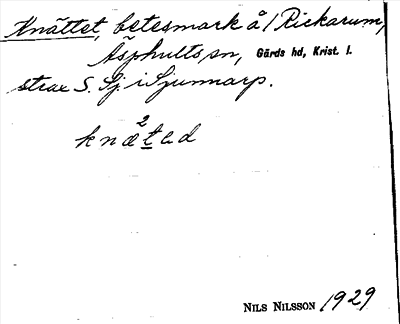 Knättet, betesmark å 1 Rickarum,
Äsphults sn, Gärds hd, Krist. l.
strax S. Sj. i Sjunnarp.
2
knæted
NILS NILSSON 1929